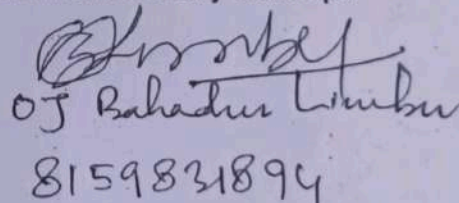 OJ Bahadur Limbu
8159831894